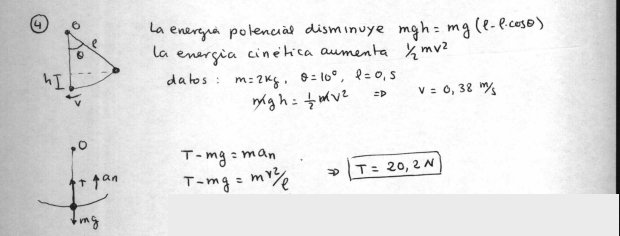 4
O
θ
l
h
v
La energía potencial disminuye mgh = mg (l - l·cosθ)
La energía cinética aumenta ½ mv²
datos : m = 2kg, θ = 10°, l = 0,5
mgh = ½ mv² ⇒ v = 0,38 m/s
O
T
an
mg
T - mg = man
T - mg = m v²/l ⇒ T = 20,2 N